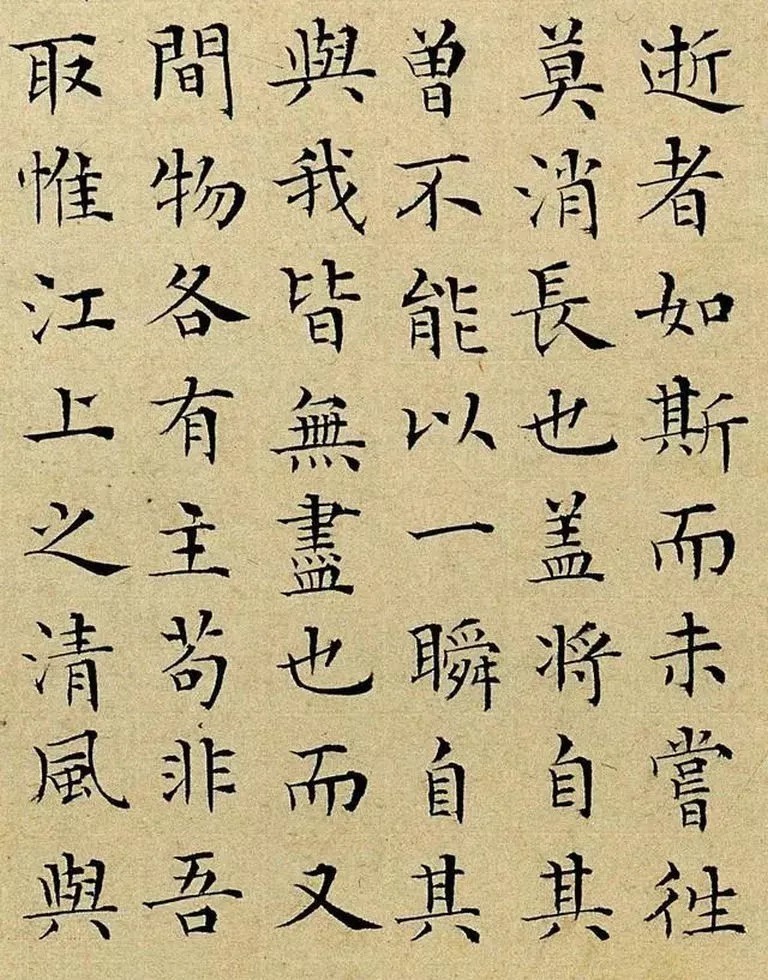 逝者如斯而未嘗徃
莫消長也盖將自其
曽不能以一瞬自其
與我皆無盡也而又
間物各有主苟非吾
取惟江上之清風與